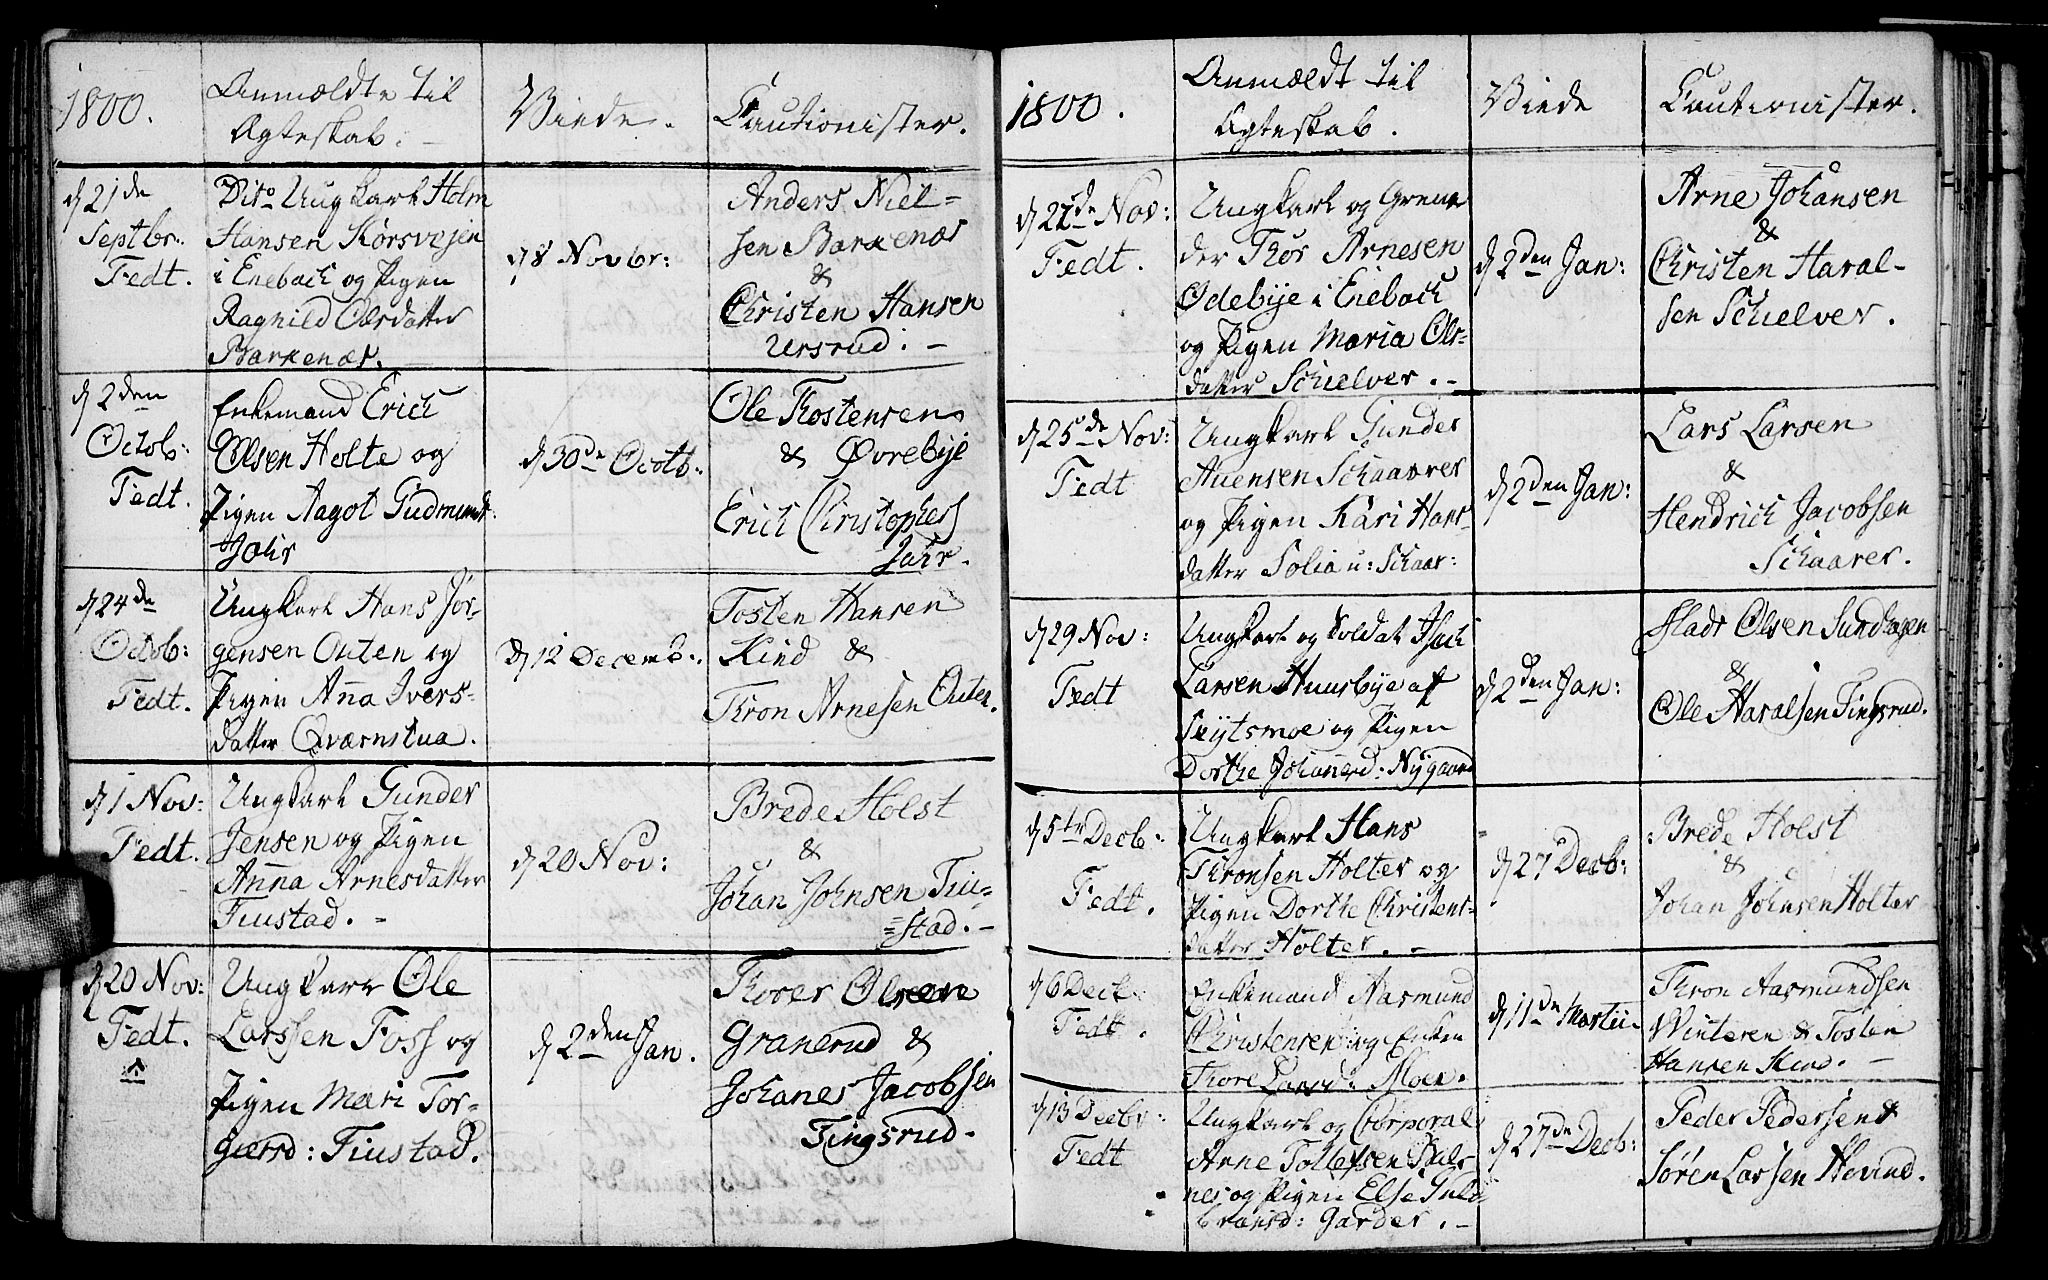 1800.
Anmældte til
Ægteskab.
Viede.
Cautionister.
d 21de
Septbr.
Fedt.
Dito Ungkarl Holm
Hansen Korsvejen
i Enebach og Pigen
Ragnild Olsdatter
Barkenæs.
d 8 Novbr:
Anders Niel-
sen Barkenæs
&
Christen Hansen
Ursrud.
d 2den
Octob:
Fedt.
Enkemand Erich
Olsen Holte og
Pigen Aagot Gudmunds
Jahr
d 30de Octb.
Ole Thostensen
& Øvrebye
Erich Christophers
Jahr.
d 24de
Octob:
Fedt.
Ungkarl Hans Jør-
gensen Outen og
Pigen Anna Ivers-
datter Qværnstua.
d 12 Decemb.
Tosten Hansen
Kind &
Thron Arnesen Outen.
d 1 Nov:
Fedt.
Ungkarl Gunder
Jensen og Pigen
Anna Arnesdatter
Fiustad.
d 20 Nov:
Brede Holst
&
Johan Johnsen Fiu-
stad.
d 20 Nov:
Fedt.
Ungkarl Ole
Larssen Foss og
Pigen Mari Tor-
gersd: Fiustad.
d 2den Jan.
Thorer Olsen
Granerud &
Johanes Jacobsen
Tingsrud.
1800.
Anmældt til
Ægteskab.
Viede
Cautionister.
d 22de Nov:
Fedt.
Ungkarl og Grena
der Thor Arnesen
Ødebye i Enebach
og Pigen Maria Ols-
datter Schielver.
d 2den Jan:
Arne Johansen
&
Christen Haral-
sen Schielver.
d 25de Nov:
Fedt
Ungkarl Gunder
Auensen Schaarer
og Pigen Kari Hans-
datter Solia u: Schaar:
d 2den Jan:
Lars Larsen
&
Hendrich Jacobsen
Schaarer.
d 29 Nov:
Fedt
Ungkarl og Soldat Isach
Larsen Huusbye af
og Pigen
Dorthe Johanesd: Nygaard
d 2den Jan:
Olsen Sundhagen
&
Ole Haralsen Tingsrud.
d 5te Decb:
Fedt.
Ungkarl Hans
Thronsen Holter og
Pigen Dorthe Christens-
datter Holter.
d 27 Decb:
Brede Holst
&
Johan Johnsen Holter
d 6 Decb:
Fedt.
Enkemand Aasmund
Christensen og Enken
Thore Larsd: Moen.
d 11de Martii.
Thron Aasmundsen
Winteren & Tosten
Hansen Kind.
d 13 Decbr:
Fedt
Ungkarl og Corporal
Arne Tollefsen
og Pigen Else Gul-
bransd: Garder.
d 27de Decb:
Peder Pedersen &
Søren Larsen Hovind.